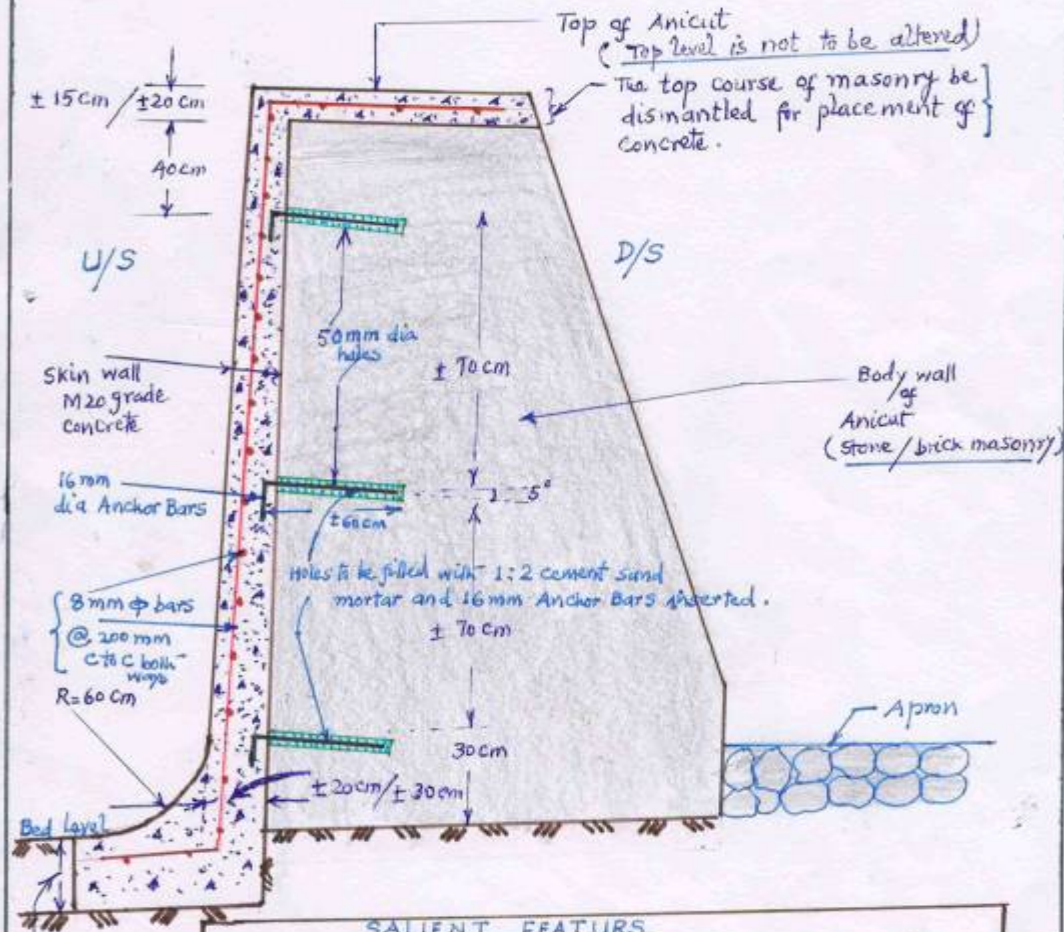 Top of Anicut
( Top level is not to be altered)
± 15cm / ±20cm
The top course of masonry be
dismantled for placement of
concrete.
40cm
U/S
D/S
50mm dia
holes
± 70cm
Skin wall
M20 grade
concrete
Body wall
of
Anicut
(stone / brick masonry)
16mm
dia Anchor Bars
5°
±60cm
Holes to be filled with 1:2 cement sand
mortar and 16mm Anchor Bars inserted.
8mm φ bars
@ 200mm
C to C both
ways
± 70cm
R=60 Cm
Apron
30cm
±20cm/± 30cm
Bed Level
SALIENT FEATURS